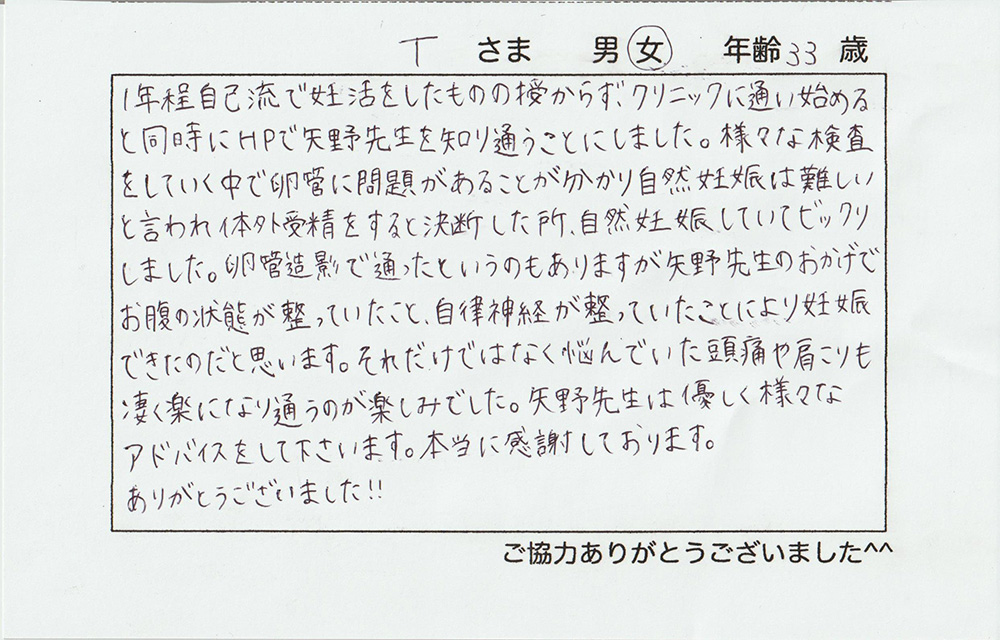 T さま 男 女 年齢 33 歳
1年程自己流で妊活をしたものの授からず、クリニックに通い始める
と同時にHPで矢野先生を知り通うことにしました。様々な検査
をしていく中で卵管に問題があることが分かり自然妊娠は難しい
と言われ体外受精をすると決断した所、自然妊娠していてビックリ
しました。卵管造影で通ったというのもありますが矢野先生のおかげで
お腹の状態が整っていたこと、自律神経が整っていたことにより妊娠
できたのだと思います。それだけではなく悩んでいた頭痛や肩こりも
凄く楽になり通うのが楽しみでした。矢野先生は優しく様々な
アドバイスをして下さいます。本当に感謝しております。
ありがとうございました!!
ご協力ありがとうございました^^